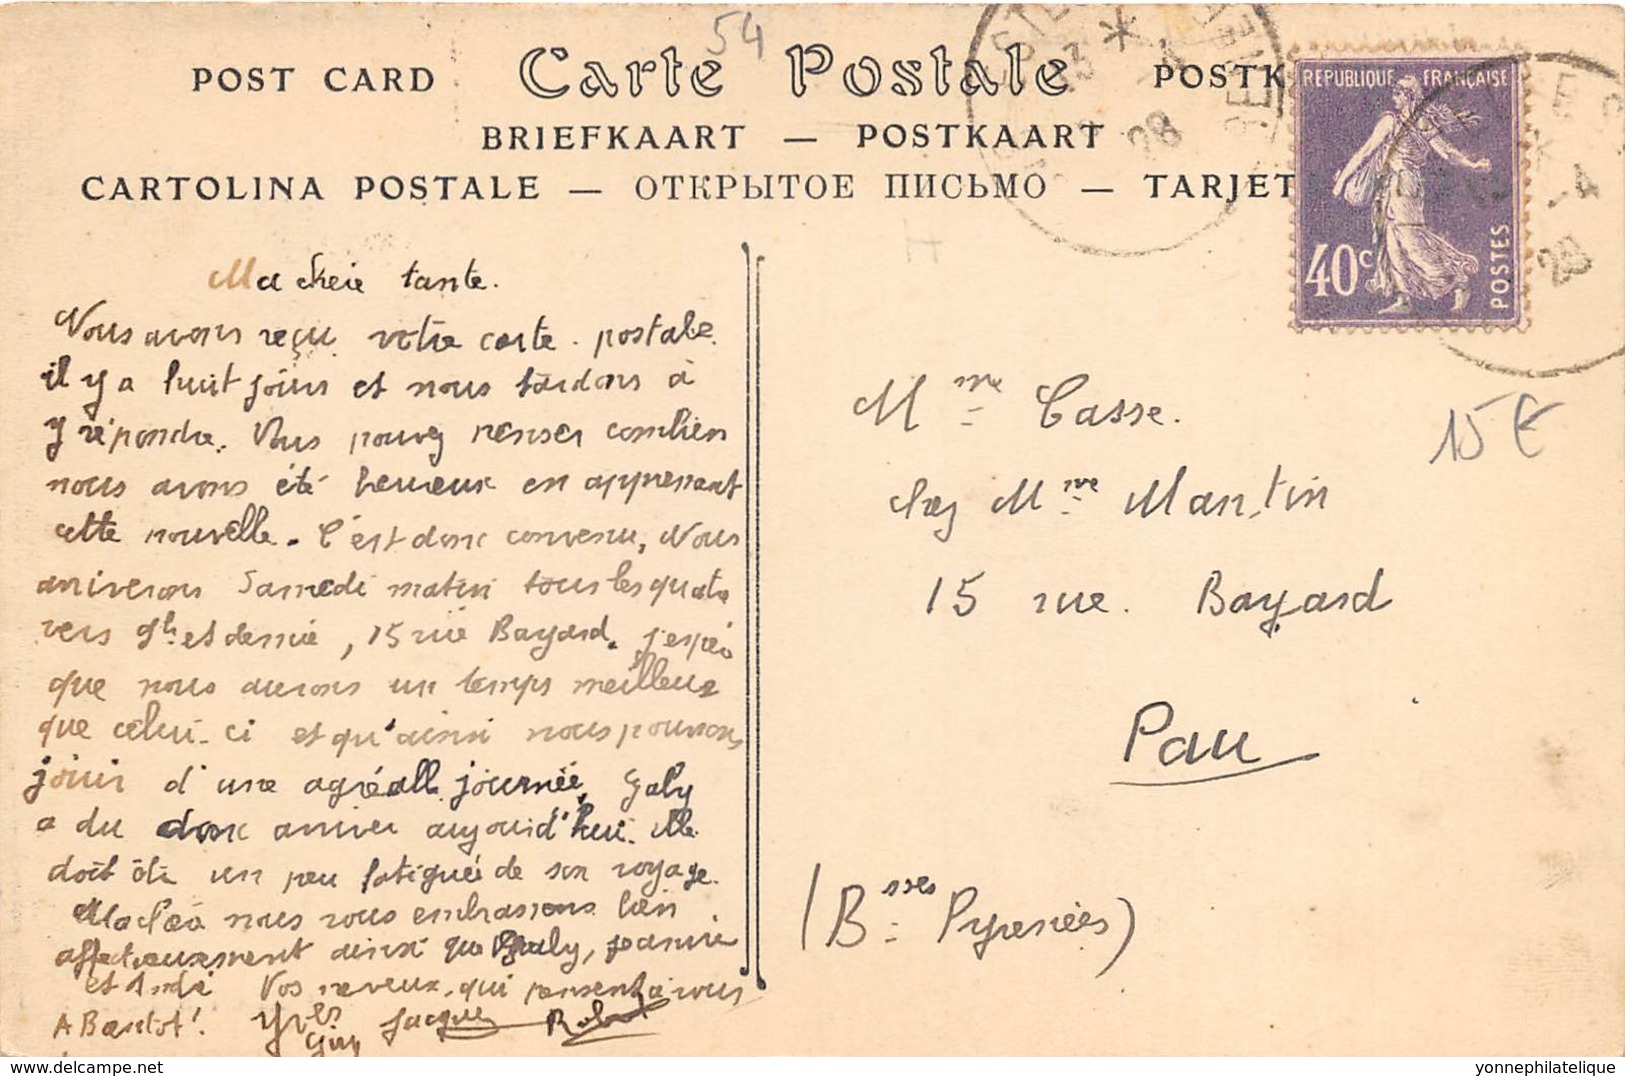 54
POST CARD Carte Postale POSTK
BRIEFKAART — POSTKAART
CARTOLINA POSTALE — ОТКРЫТОЕ ПИСЬМО — TARJET
REPUBLIQUE FRANÇAISE
40c
POSTES
28
-4
28
H
Ma cheie tante.
Nous avons reçu votre carte postale
il y a huit jours et nous tardons à
y répondre. Vous pouvez penser combien
nous avons été heureux en apprenant
cette nouvelle. C'est donc convenu, Nous
arriverons Samedi matin tous les quatre
vers 9h et demie, 15 rue Bayard. j'espère
que nous aurons un temps meilleur
que celui-ci et qu'ainsi nous pourrons
jouir d'une agréable journée, Galy
a du donc arriver aujourd'hui. elle
doit être un peu fatiguée de son voyage.
nous vous embrassons bien
affectueusement ainsi que Galy, Jeanne
et André Vos neveux qui pensent à vous
A Bientot! Yves Guy Jacques Robert
Mme Casse.
chez Mme Mantin
15 rue Bayard
Pau
(Bsses Pyrenées)
15 €
delcampe.net
yonnephilatelie.com